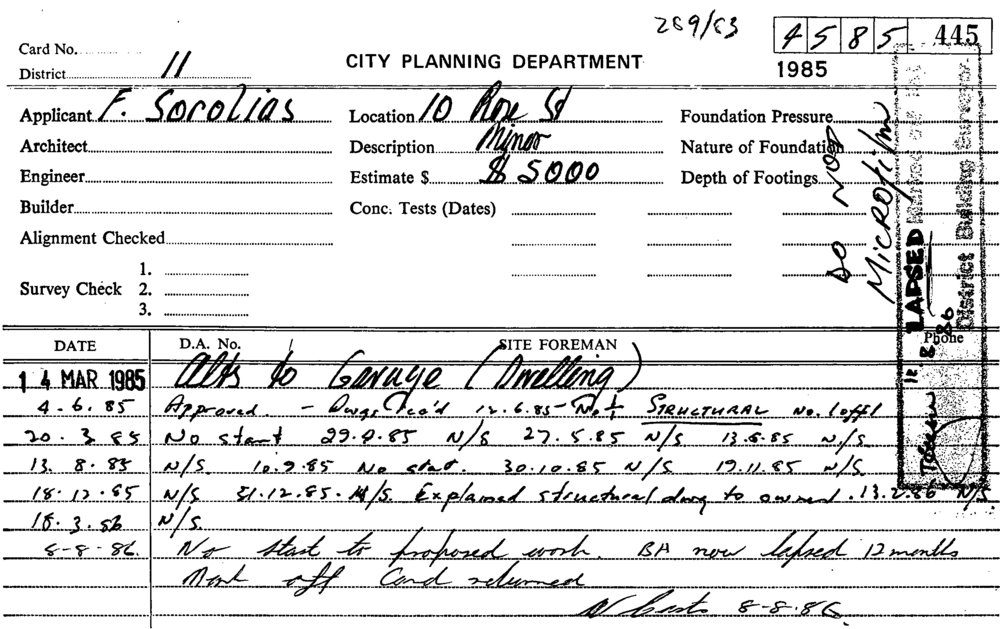 289/83
4 5 8 5 445
Card No.
District 11
CITY PLANNING DEPARTMENT
1985
Applicant F. Sorolias
Location 10 Rose St
Foundation Pressure
Architect
Description Minor
Nature of Foundation
Engineer
Estimate $ $ 5000
Depth of Footings
Builder
Conc. Tests (Dates)
Alignment Checked
Survey Check
1.
2.
3.
DO NOT
Microfilm
LAPSED
District Building Surveyor.
DATE D.A. No. SITE FOREMAN Phone
14 MAR 1985 Alts to Garage (Dwelling)
4.6.85 Approved. - Dwgs rec'd 12.6.85 - Not STRUCTURAL No.
20.3.85 No start 29.4.85 N/S 27.5.85 N/S 13.6.85 N/S.
13.8.85 N/S. 10.9.85 No start. 30.10.85 N/S 19.11.85 N/S.
18.12.85 N/S 31.12.85. N/S. Explained structural dwg to owner. 13.2.86 N/S
18.3.86 N/S.
8-8-86. No start to proposed work. BA now lapsed 12 months
Mark off Card returned
8-8-86